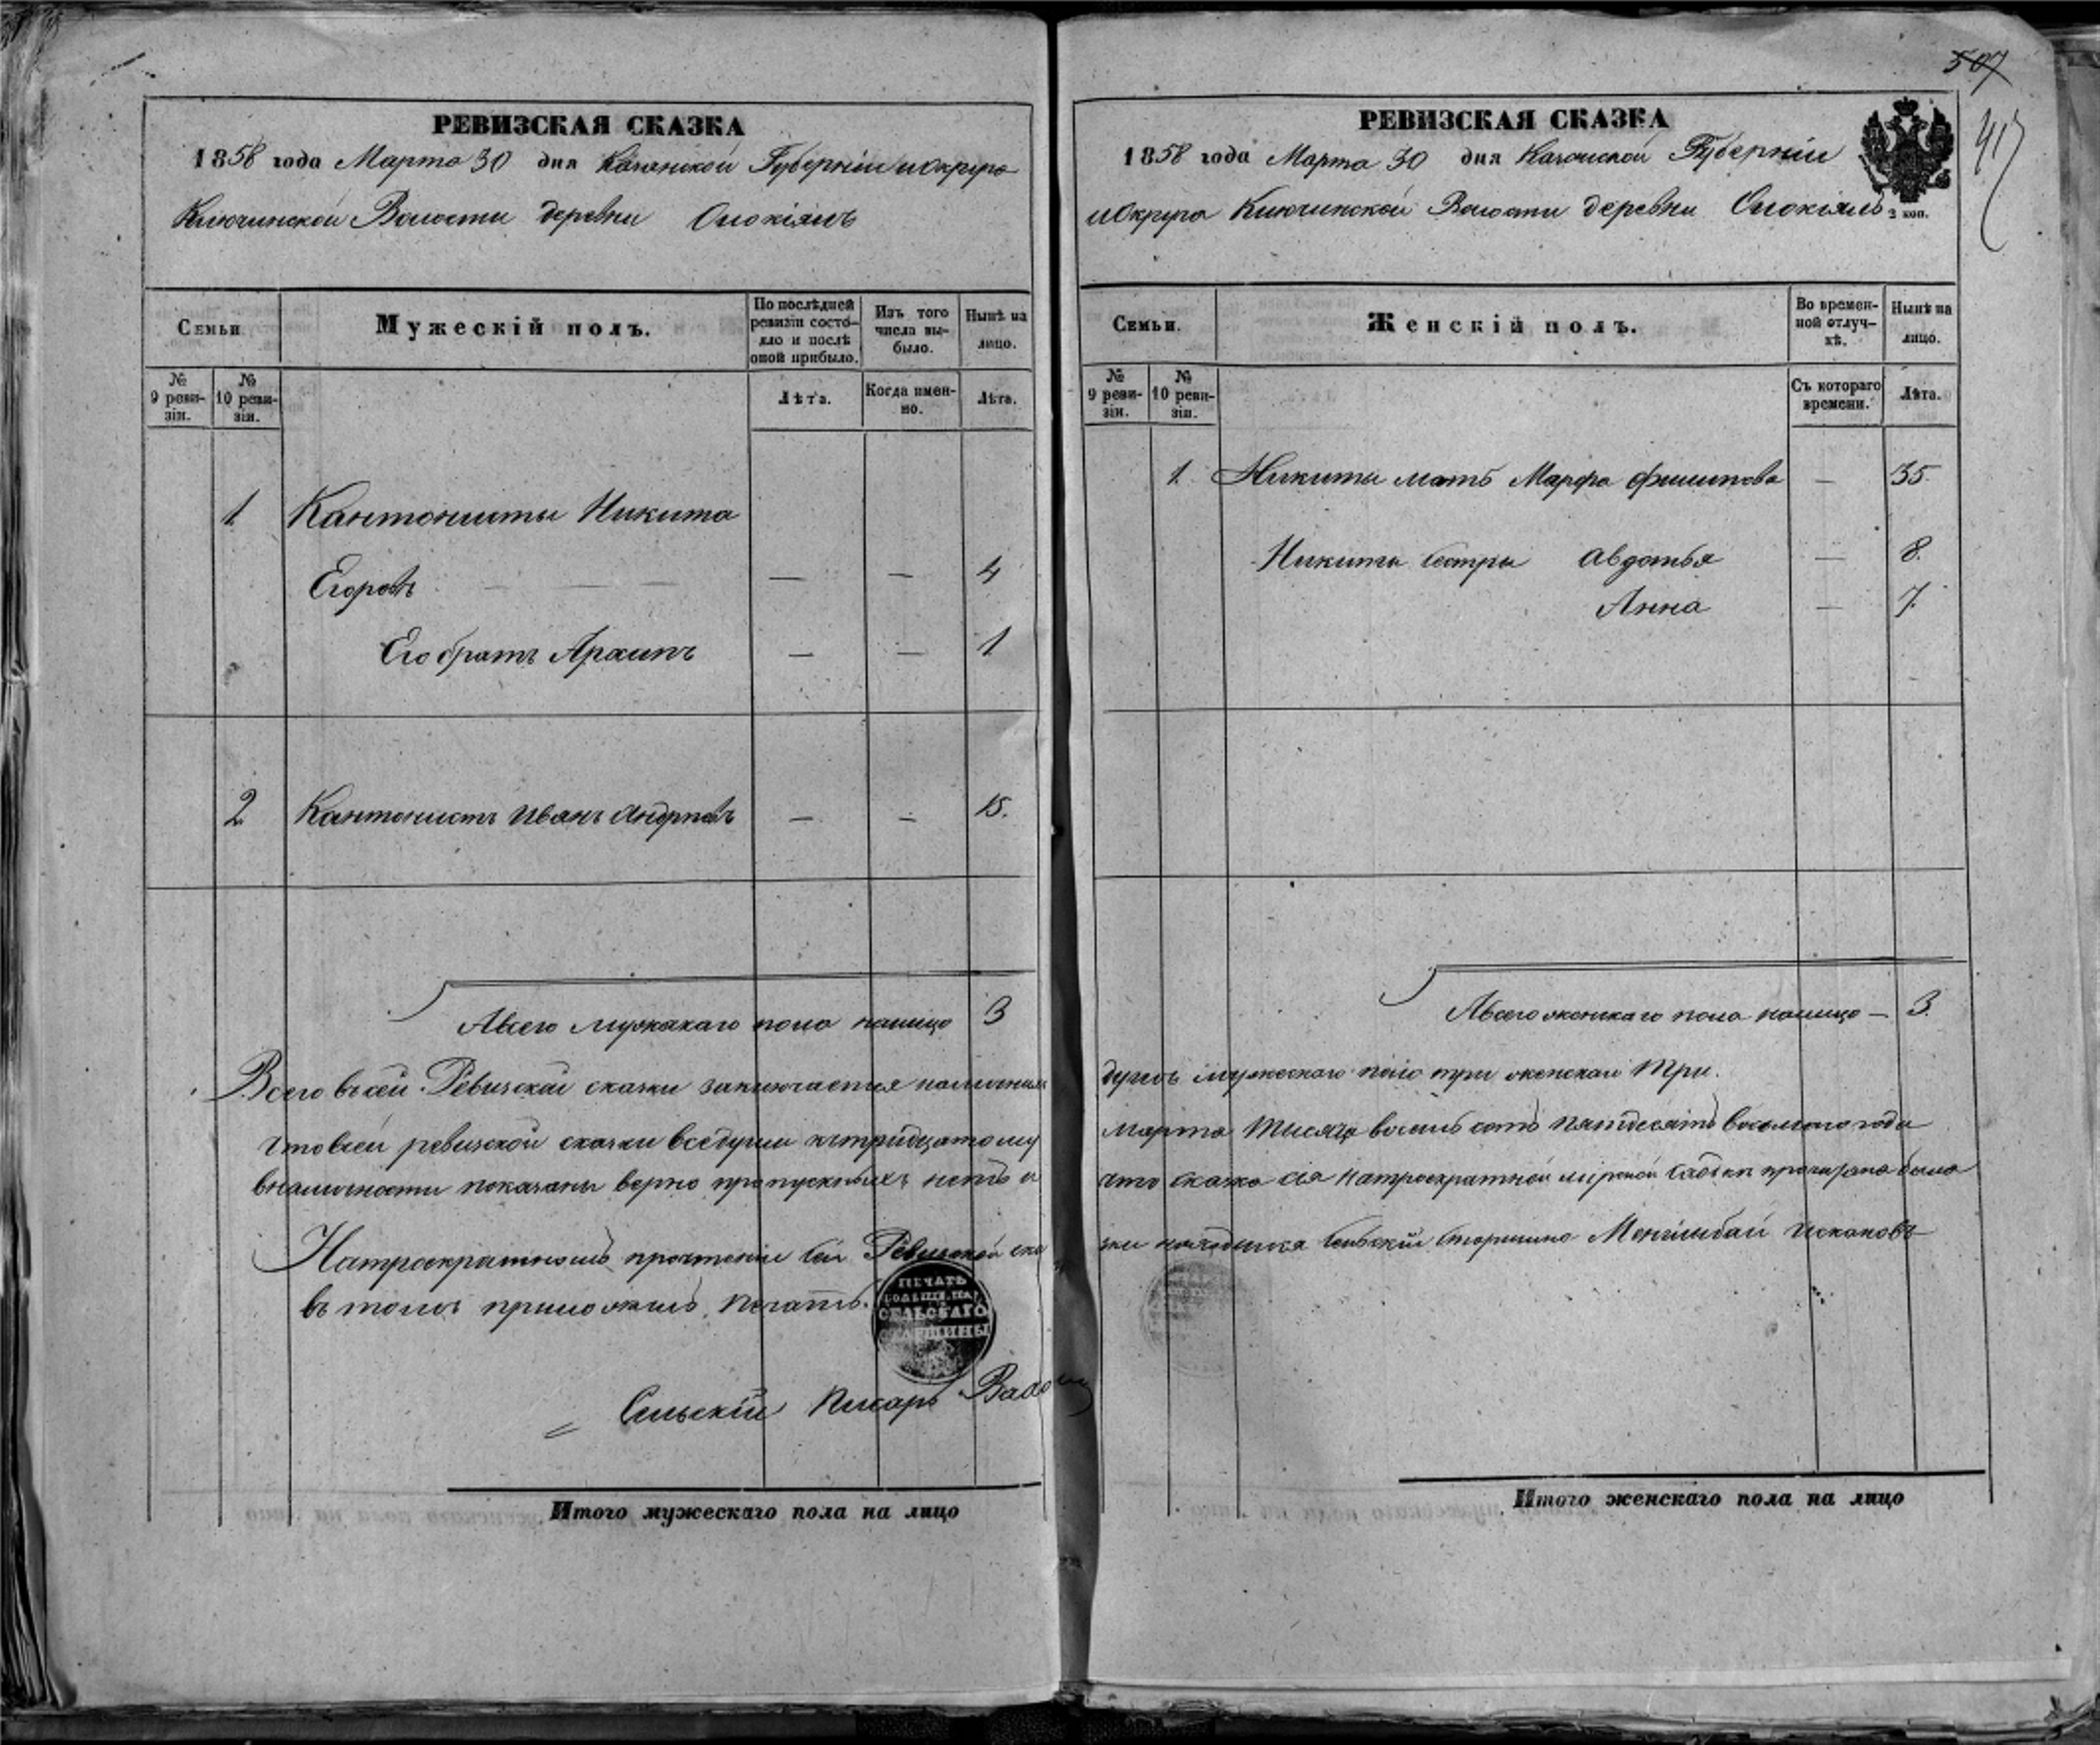 РЕВИЗСКАЯ СКАЗКА
1858 года Марта 30 дня Казанской Губерніи и Округа
Ключинской Волости деревни
Семьи
Мужескій полъ.
По послѣдней ревизіи состояло и послѣ оной прибыло.
Изъ того числа выбыло.
Нынѣ на лицо.
№ 9 ревизіи.
№ 10 ревизіи.
Лѣта.
Когда именно.
Лѣта.
1. Кантонисты Никита
Егоровъ — — 4
Его братъ Архипъ — — 1
2 Кантонистъ Иванъ Андреевъ — — 15.
А всего мужескаго пола налицо 3
Всего въ сей Ревизской сказки заключается наличныхъ
что в сей ревизской сказки все души къ тридцатому
в наличности показаны верно пропускныхъ нетъ и
На троекратномъ прочтеніи сей Ревизской ска
въ томъ приложилъ печать.
ПЕЧАТЬ
СЕЛЬСКАГО
СТАРШИНЫ
Сельскій Писарь
Итого мужескаго пола на лицо
507
417
РЕВИЗСКАЯ СКАЗКА
1858 года Марта 30 дня Казанской Губерніи
и Округа Ключинской Волости деревни
2 коп.
Семьи.
Женскій полъ.
Во временной отлучкѣ.
Нынѣ на лицо.
№ 9 ревизіи.
№ 10 ревизіи.
Съ котораго времени.
Лѣта.
1. Никиты мать Марфа Филипова — 35.
Никиты сестры Авдотья — 8.
Анна — 7.
А всего женскаго пола налицо — 3.
душъ мужескаго пола три женскаи три.
Марта тысяча восемь сотъ пятдесятъ восьмого года
что сказка сія на троекратной мірской прочитана была
зки находился Сельскій Старшина
Итого женскаго пола на лицо